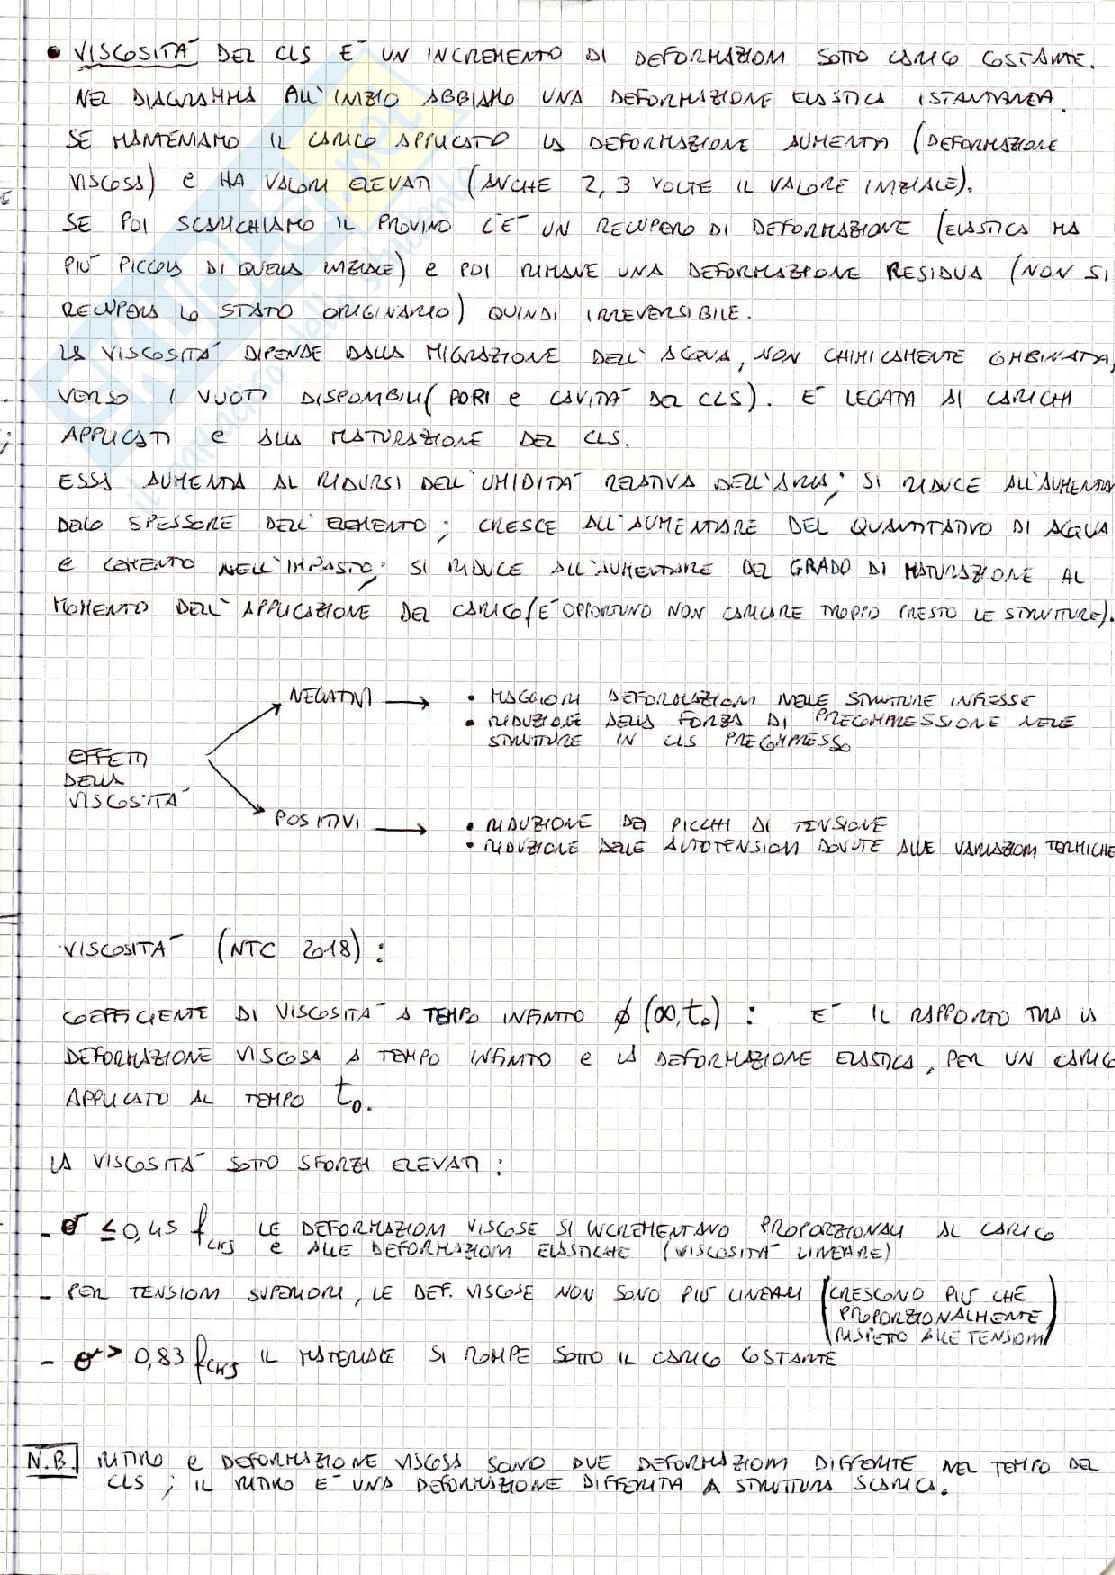 • VISCOSITÀ DEL CLS È UN INCREMENTO DI DEFORMAZIONI SOTTO CARICO COSTANTE.
NEL DIAGRAMMA ALL'INIZIO ABBIAMO UNA DEFORMAZIONE ELASTICA ISTANTANEA.
SE MANTENIAMO IL CARICO APPLICATO LA DEFORMAZIONE AUMENTA (DEFORMAZIONE
VISCOSA) e HA VALORI ELEVATI (ANCHE 2, 3 VOLTE IL VALORE INIZIALE).
SE POI SCARICHIAMO IL PROVINO C'È UN RECUPERO DI DEFORMAZIONE (ELASTICA MA
PIÙ PICCOLA DI QUELLA INIZIALE) e POI RIMANE UNA DEFORMAZIONE RESIDUA (NON SI
RECUPERA LO STATO ORIGINARIO) QUINDI IRREVERSIBILE.
LA VISCOSITÀ DIPENDE DALLA MIGRAZIONE DELL'ACQUA, NON CHIMICAMENTE COMBINATA,
VERSO I VUOTI DISPONIBILI (PORI e CAVITÀ DEL CLS). È LEGATA AI CARICHI
APPLICATI e ALLA MATURAZIONE DEL CLS.
ESSA AUMENTA AL RIDURSI DELL'UMIDITÀ RELATIVA DELL'ARIA; SI RIDUCE ALL'AUMENTAR
DELLO SPESSORE DELL'ELEMENTO; CRESCE ALL'AUMENTARE DEL QUANTITATIVO DI ACQUA
e CEMENTO NELL'IMPASTO; SI RIDUCE ALL'AUMENTARE DEL GRADO DI MATURAZIONE AL
MOMENTO DELL'APPLICAZIONE DEL CARICO (È OPPORTUNO NON CARICARE TROPPO PRESTO LE STRUTTURE).
NEGATIVI → • MAGGIORI DEFORMAZIONI NELLE STRUTTURE INFLESSE
• RIDUZIONE DELLA FORZA DI PRECOMPRESSIONE NELLE
STRUTTURE IN CLS PRECOMPRESSO
EFFETTI
DELLA
VISCOSITÀ
POSITIVI → • RIDUZIONE DEI PICCHI DI TENSIONE
• RIDUZIONE DELLE AUTOTENSIONI DOVUTE ALLE VARIAZIONI TERMICHE
VISCOSITÀ (NTC 2018):
COEFFICIENTE DI VISCOSITÀ A TEMPO INFINITO ϕ (∞, t₀) : È IL RAPPORTO TRA LA
DEFORMAZIONE VISCOSA A TEMPO INFINITO e LA DEFORMAZIONE ELASTICA, PER UN CARICO
APPLICATO AL TEMPO t₀.
LA VISCOSITÀ SOTTO SFORZI ELEVATI:
- σ ≤ 0,45 fckj LE DEFORMAZIONI VISCOSE SI INCREMENTANO PROPORZIONALI AL CARICO
e ALLE DEFORMAZIONI ELASTICHE (VISCOSITÀ LINEARE)
- PER TENSIONI SUPERIORI, LE DEF. VISCOSE NON SONO PIÙ LINEARI (CRESCONO PIÙ CHE
PROPORZIONALMENTE
RISPETTO ALLE TENSIONI)
- σ > 0,83 fckj IL MATERIALE SI ROMPE SOTTO IL CARICO COSTANTE
N.B. RITIRO e DEFORMAZIONE VISCOSA SONO DUE DEFORMAZIONI DIFFERITE NEL TEMPO DEL
CLS; IL RITIRO È UNA DEFORMAZIONE DIFFERITA A STRUTTURA SCARICA.